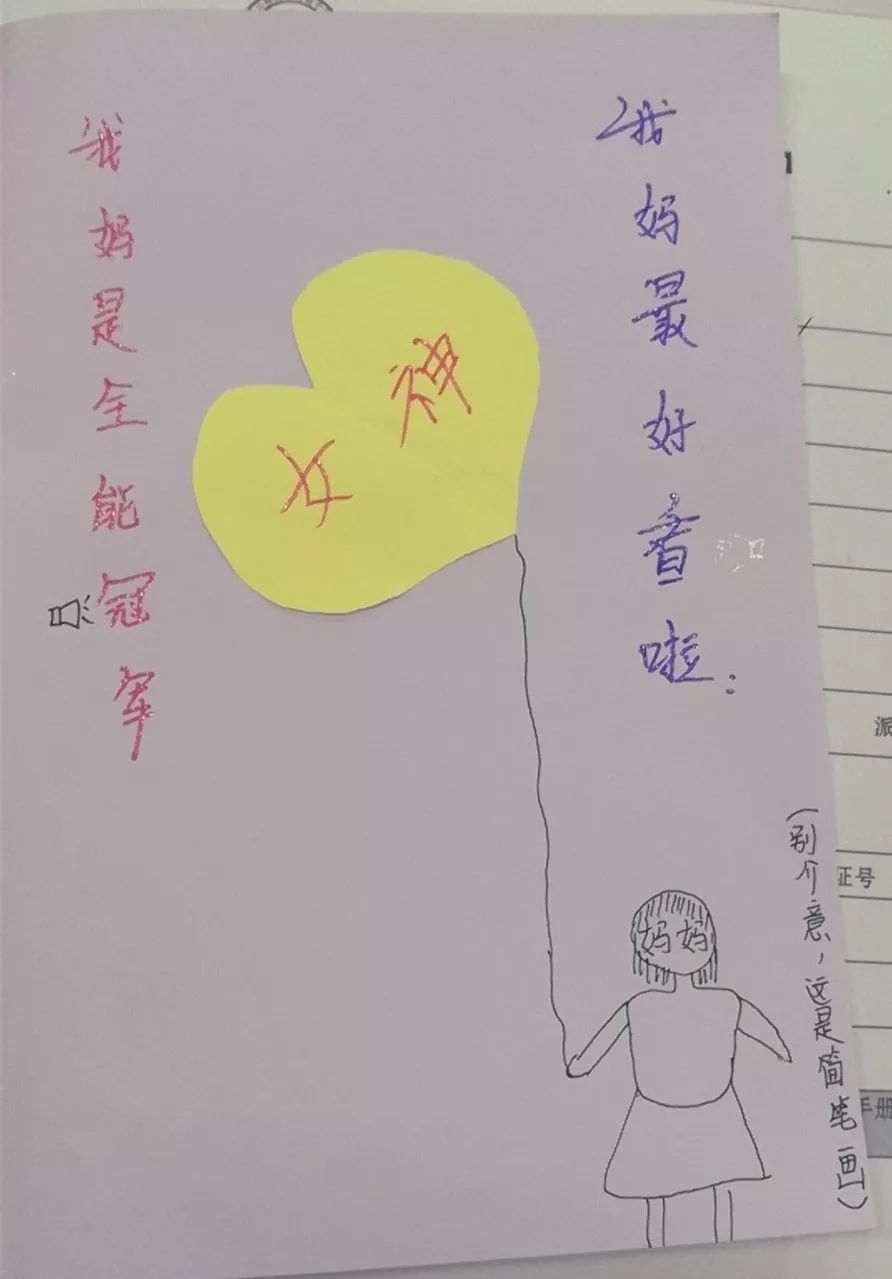 我妈最好看啦:
女神
我妈是全能冠军
妈妈
(别介意,这是简笔画)
派
证号
手册